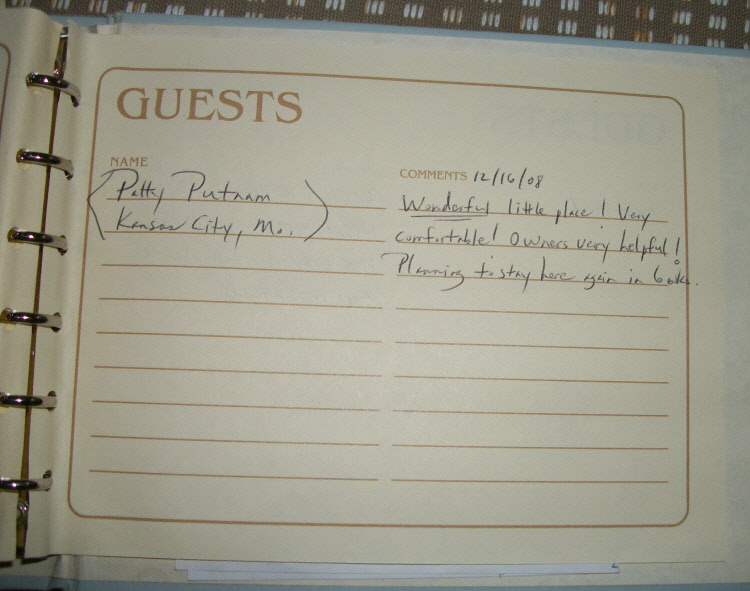 GUESTS
NAME
Patty Putnam
Kansas City, Mo.
COMMENTS 12/16/08
Wonderful little place! Very
comfortable! Owners very helpful!
Planning to stay here again in 6 wks.